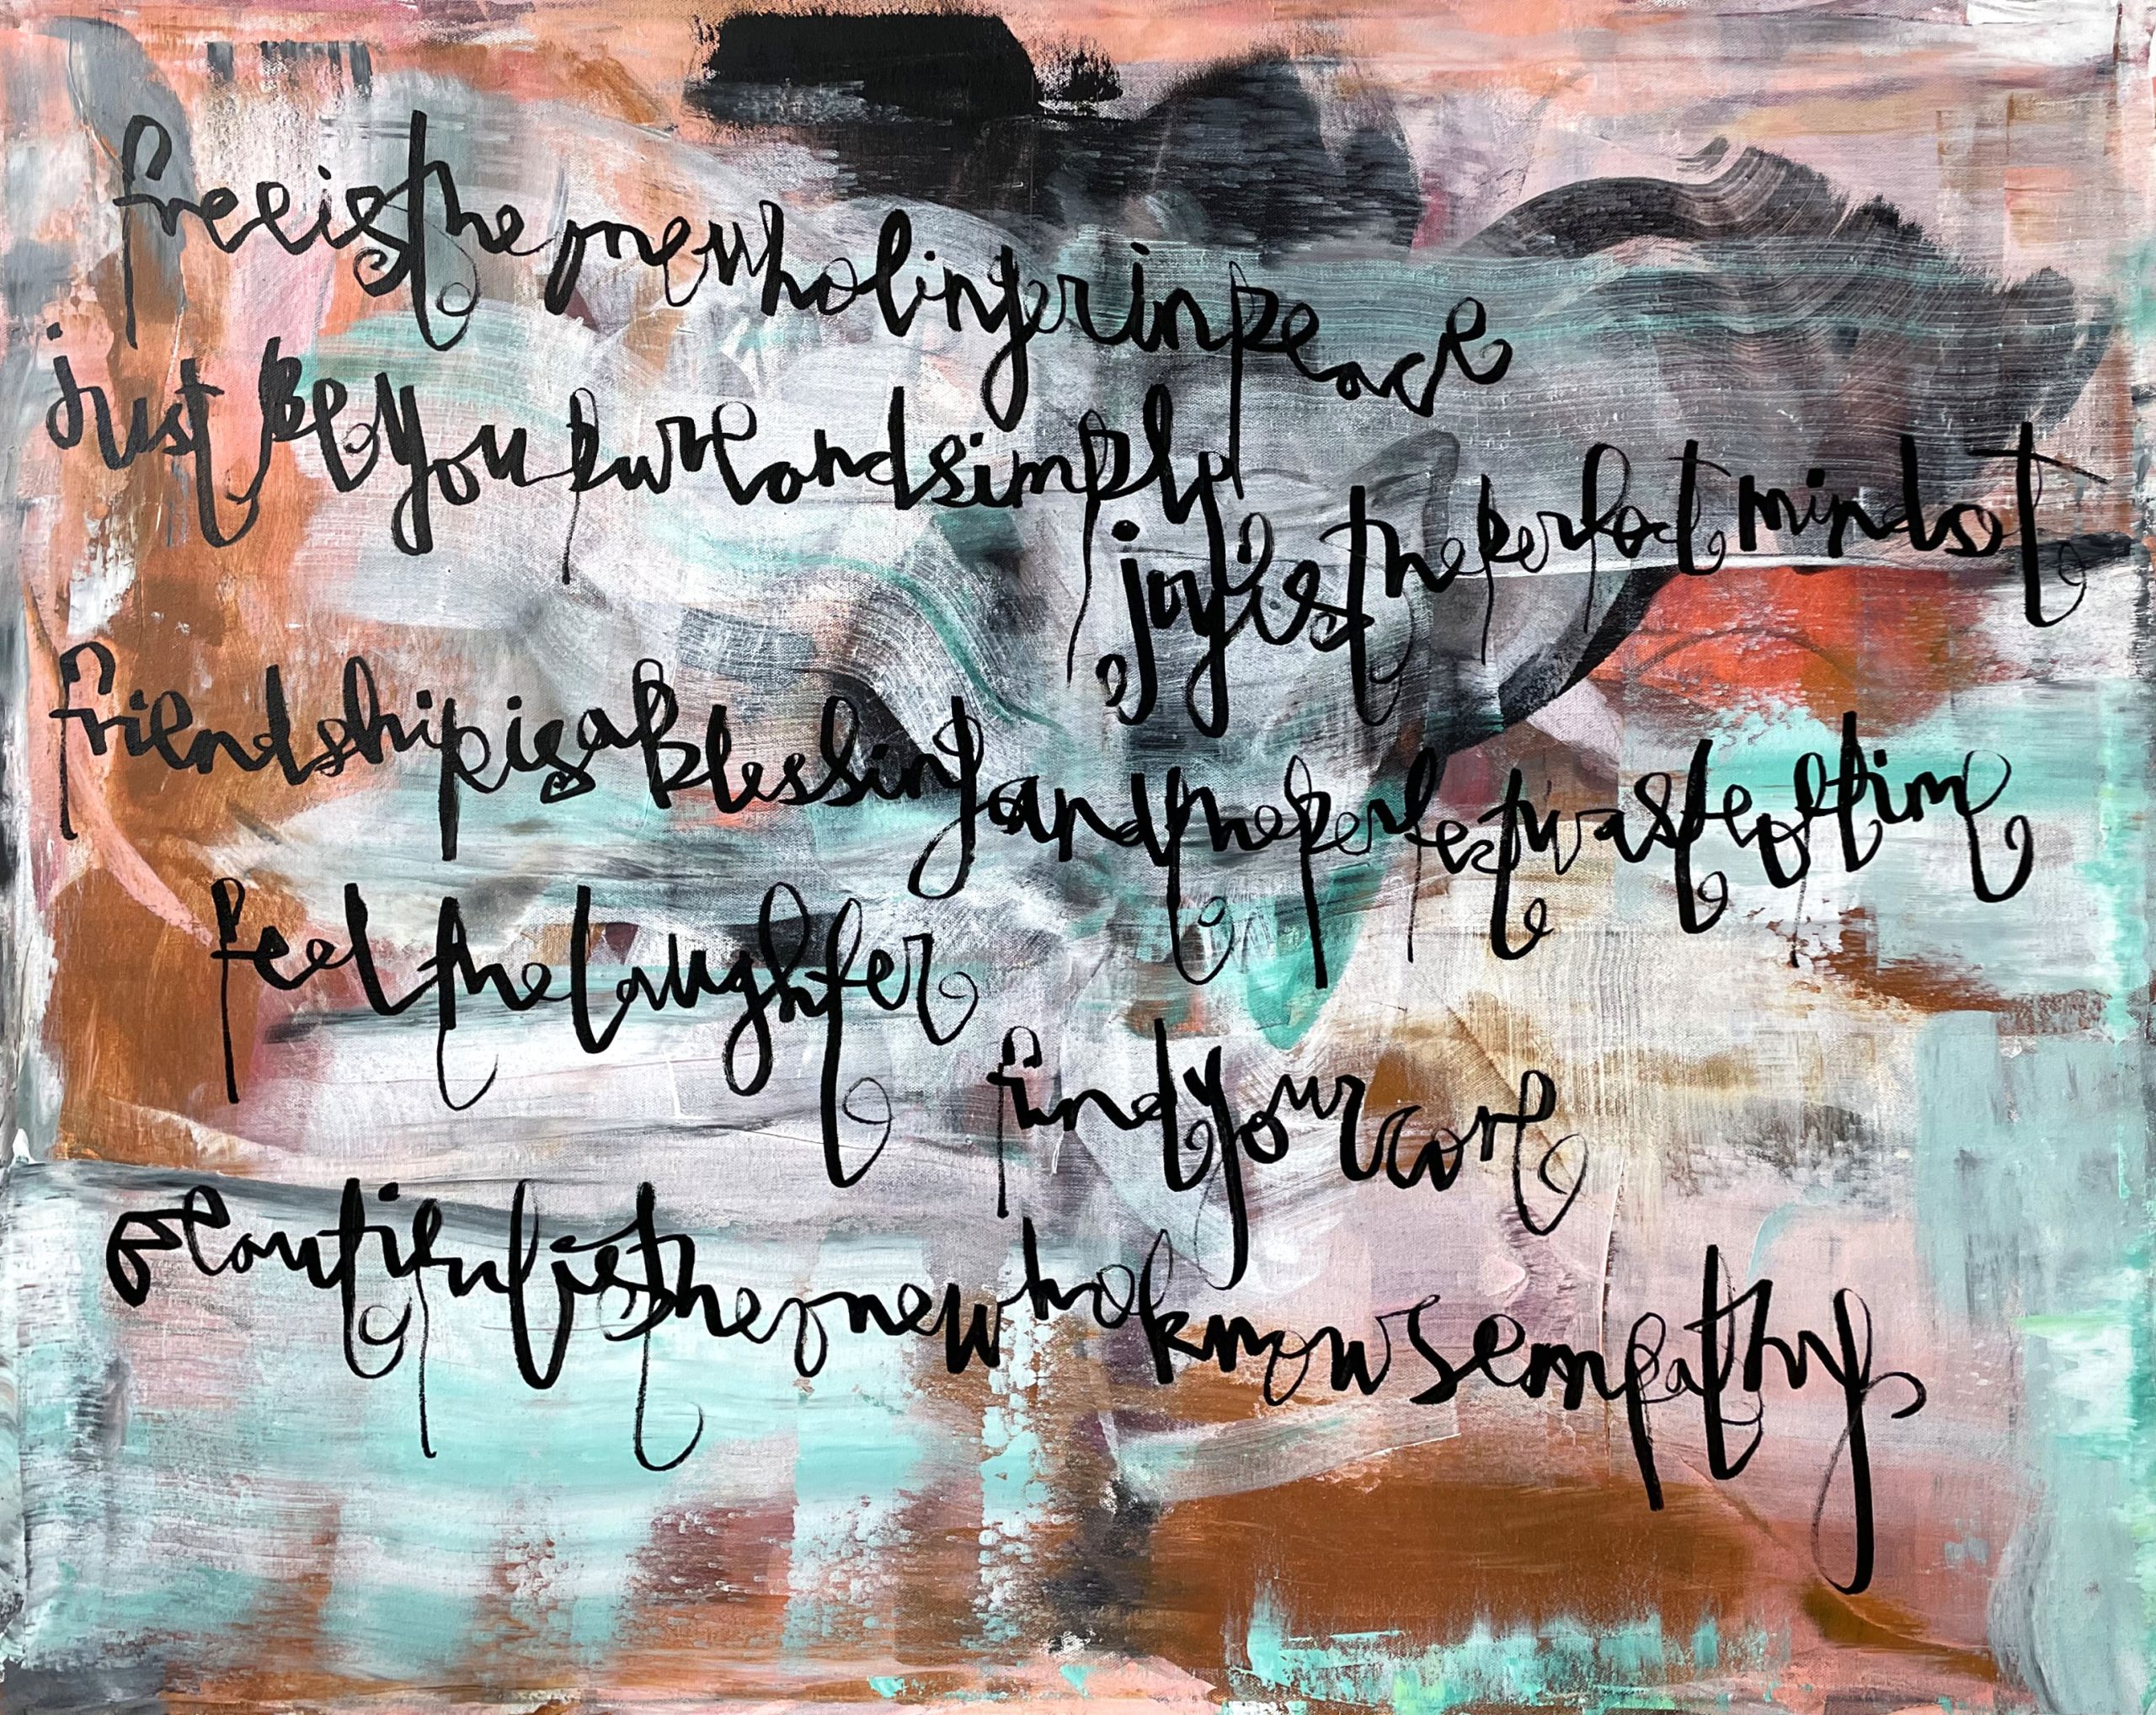 free is the one who linger in peace
just Be you pure and simply
joy is the perfect mindset
friendship is a Blessing and the perfect waste of time
feel the laughter
find your core
Beautiful is the one who knows empathy